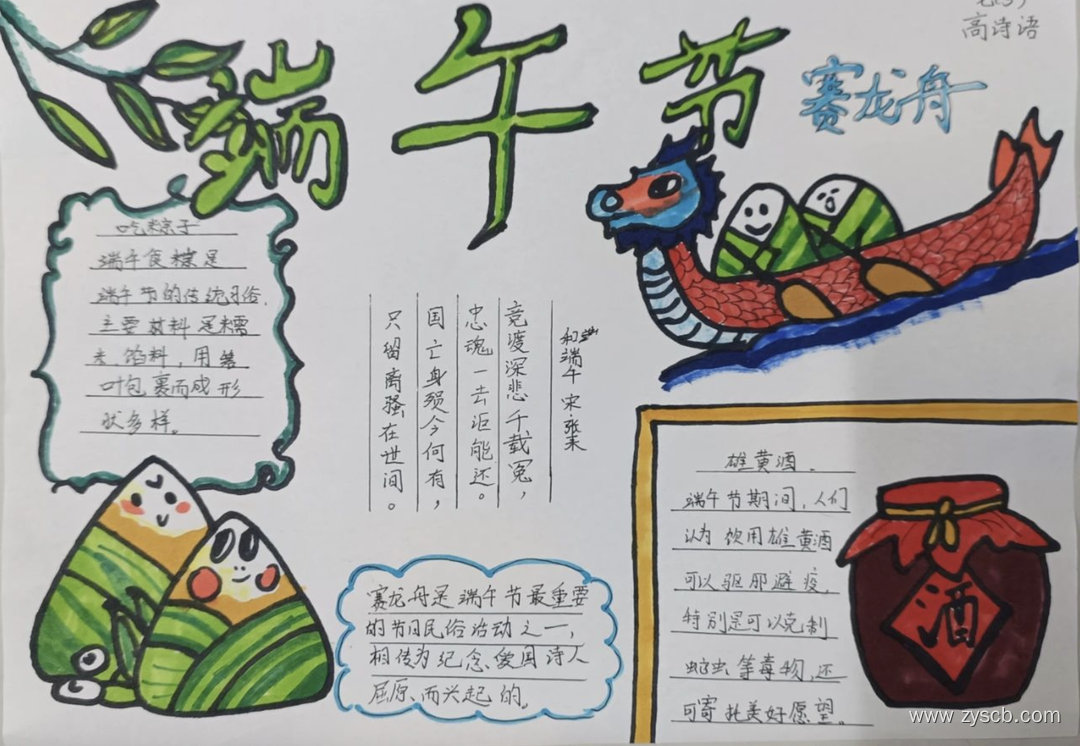 高诗语
端午节
赛龙舟
吃粽子
端午食粽是
端午节的传统习俗,
主要材料是糯
米、馅料,用箬
叶包裹而成形
状多样。
和端午 宋·张耒
竞渡深悲千载冤,
忠魂一去讵能还。
国亡身殒今何有,
只留离骚在世间。
赛龙舟是端午节最重要
的节日民俗活动之一,
相传为纪念爱国诗人
屈原、而兴起的。
雄黄酒.
端午节期间,人们
认为饮用雄黄酒
可以驱邪避疫,
特别是可以克制
蛇虫等毒物,还
可寄托美好愿望。
酒
www.zyscb.com